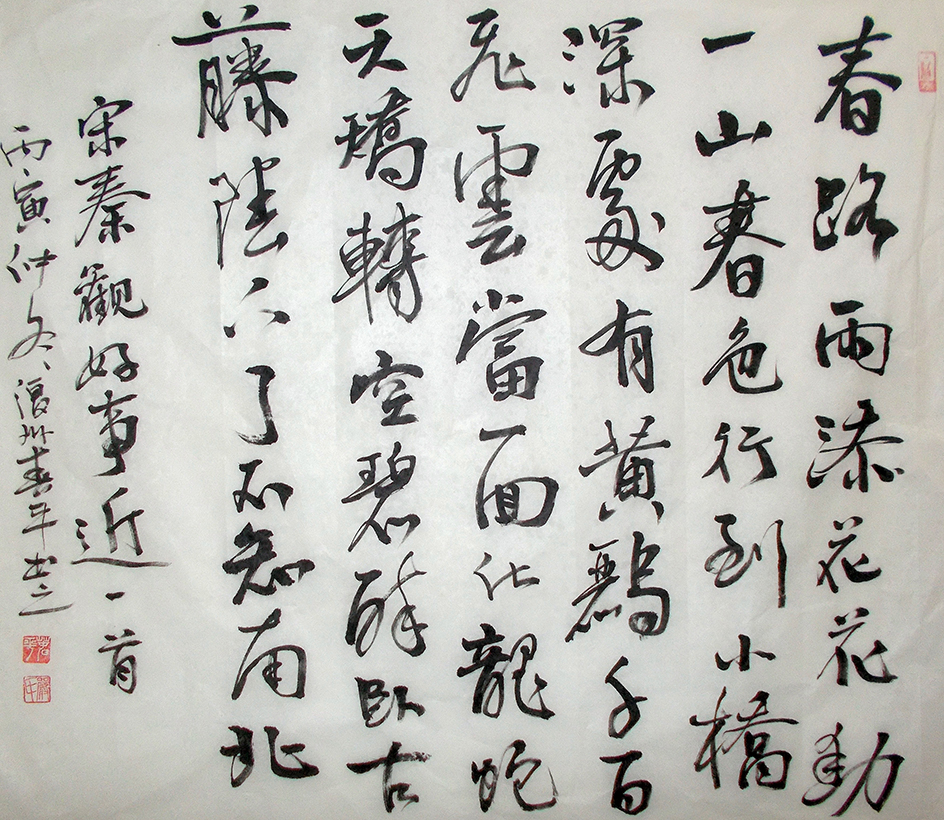 春路雨添花花動
一山春色行到小橋
深處有黃鸝千百
飛雲當面化龍蛇
夭矯轉空碧醉臥古
藤陰下了不知南北
宋秦觀好事近一首
丙寅仲冬州春平書之